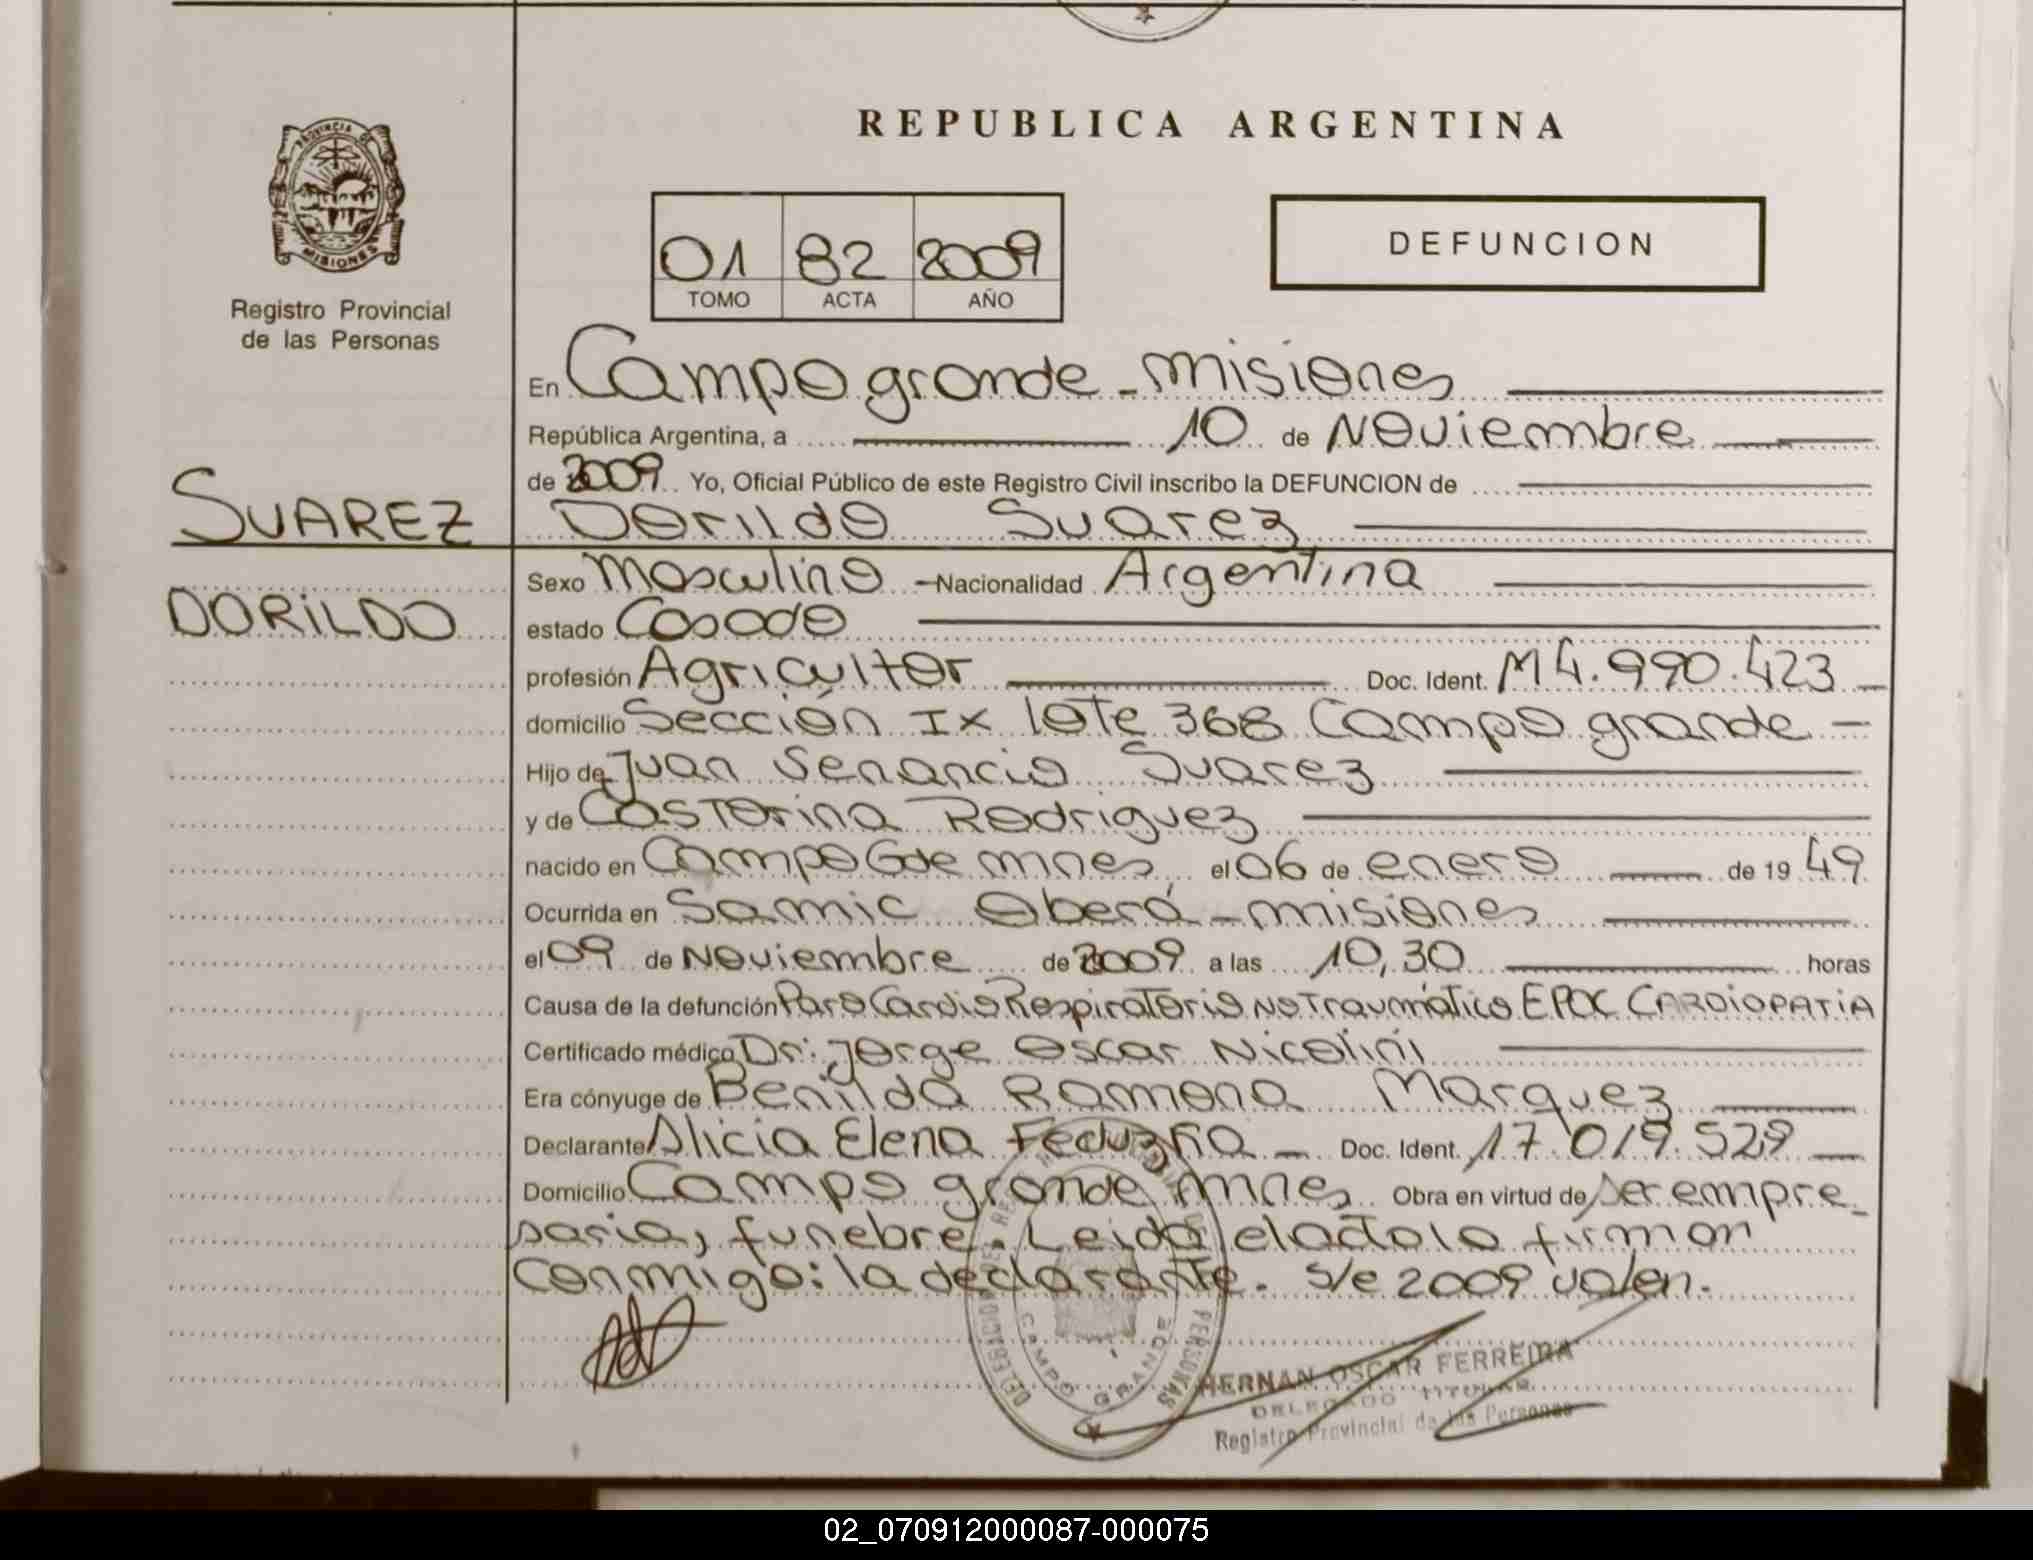 REPUBLICA ARGENTINA
PROVINCIA DE
MISIONES
Registro Provincial
de las Personas
01 82 2009
TOMO ACTA AÑO
DEFUNCION
En Campo grande - misiones
República Argentina, a 10 de Noviembre
de 2009 Yo, Oficial Público de este Registro Civil inscribo la DEFUNCION de
SUAREZ
Dorildo Suarez
Sexo Masculino - Nacionalidad Argentina
DORILDO
estado Casado
profesión Agricultor Doc. Ident. M 4.990.423
domicilio Sección IX lote 368 Campo grande -
Hijo de Juan Senancio Suarez
y de Castorina Rodriguez
nacido en Campo Gde mnes, el 06 de enero de 19 49
Ocurrida en Samic Oberá - misiones
el 09 de Noviembre de 2009 a las 10,30 horas
Causa de la defunción Paro Cardio Respiratorio No Traumático EPOC CARDIOPATIA
Certificado médico Dr: Jorge Oscar Nicolini
Era cónyuge de Benilda Ramona Marquez
Declarante Alicia Elena Doc. Ident. 17.019.529
Domicilio Campo grande mnes Obra en virtud de ser empre_
saria, funebre. Leida el acta la firman
conmigo: la declarante. S/e 2009 valen.
CAMPO GRANDE
HERNAN OSCAR FERREIRA
DELEGADO TITULAR
Registro Provincial de las Personas
02_070912000087-000075